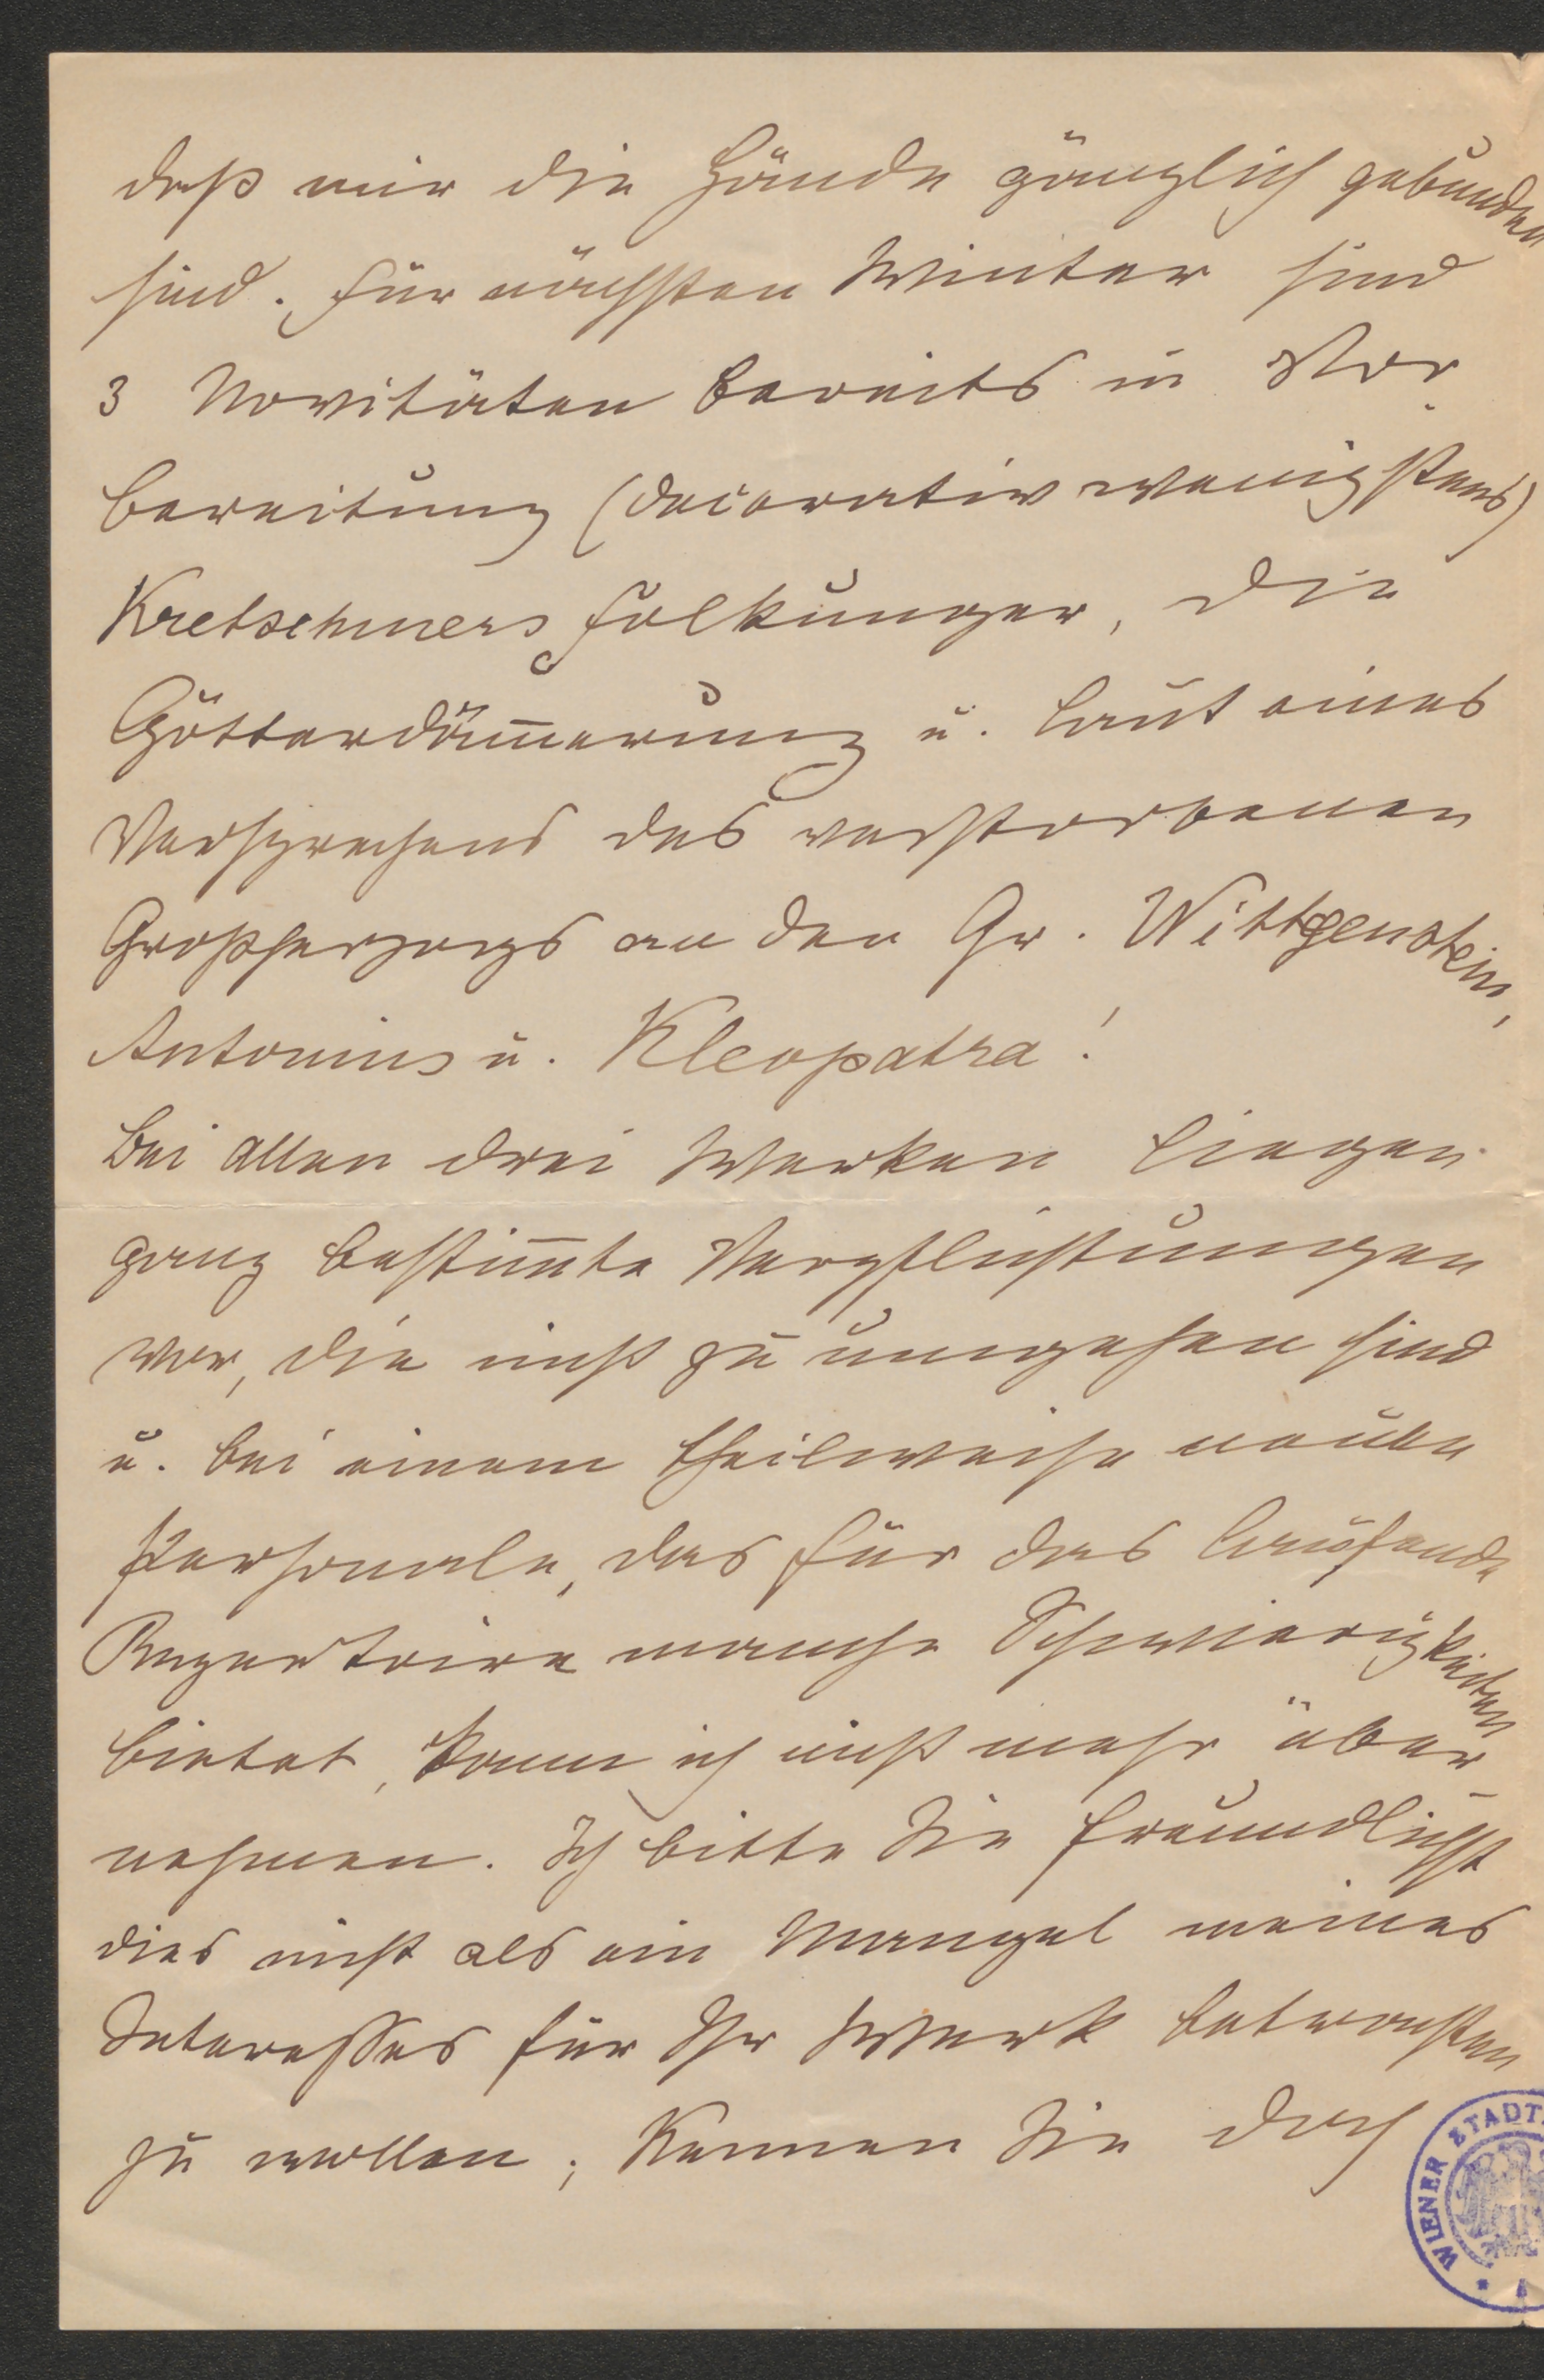 daß mir die Hände gänzlich gebunden
sind. Für nächsten Winter sind
3 Novitäten bereits in Vor-
bereitung (decorativ wenigstens)
Kretschmers Folkunger, die
Götterdäm̅erung u. laut eines
Versprechens des verstorbenen
Großherzogs an den Gr. Wittgenstein,
Antonius u. Kleopatra!
Bei allen drei Werken liegen
ganz bestim̅te Verpflichtungen
vor, die nicht zu umgehen sind
u. bei einem theilweise neuen
Personale, das für das laufende
Repertoire manche Schwierigkeiten
bietet, kann ich nicht mehr über-
nehmen. Ich bitte Sie freundlichst
dies nicht als ein Mangel meines
Interesses für Ihr Werk betrachten
zu wollen; kennen Sie doch
WIENER STADT